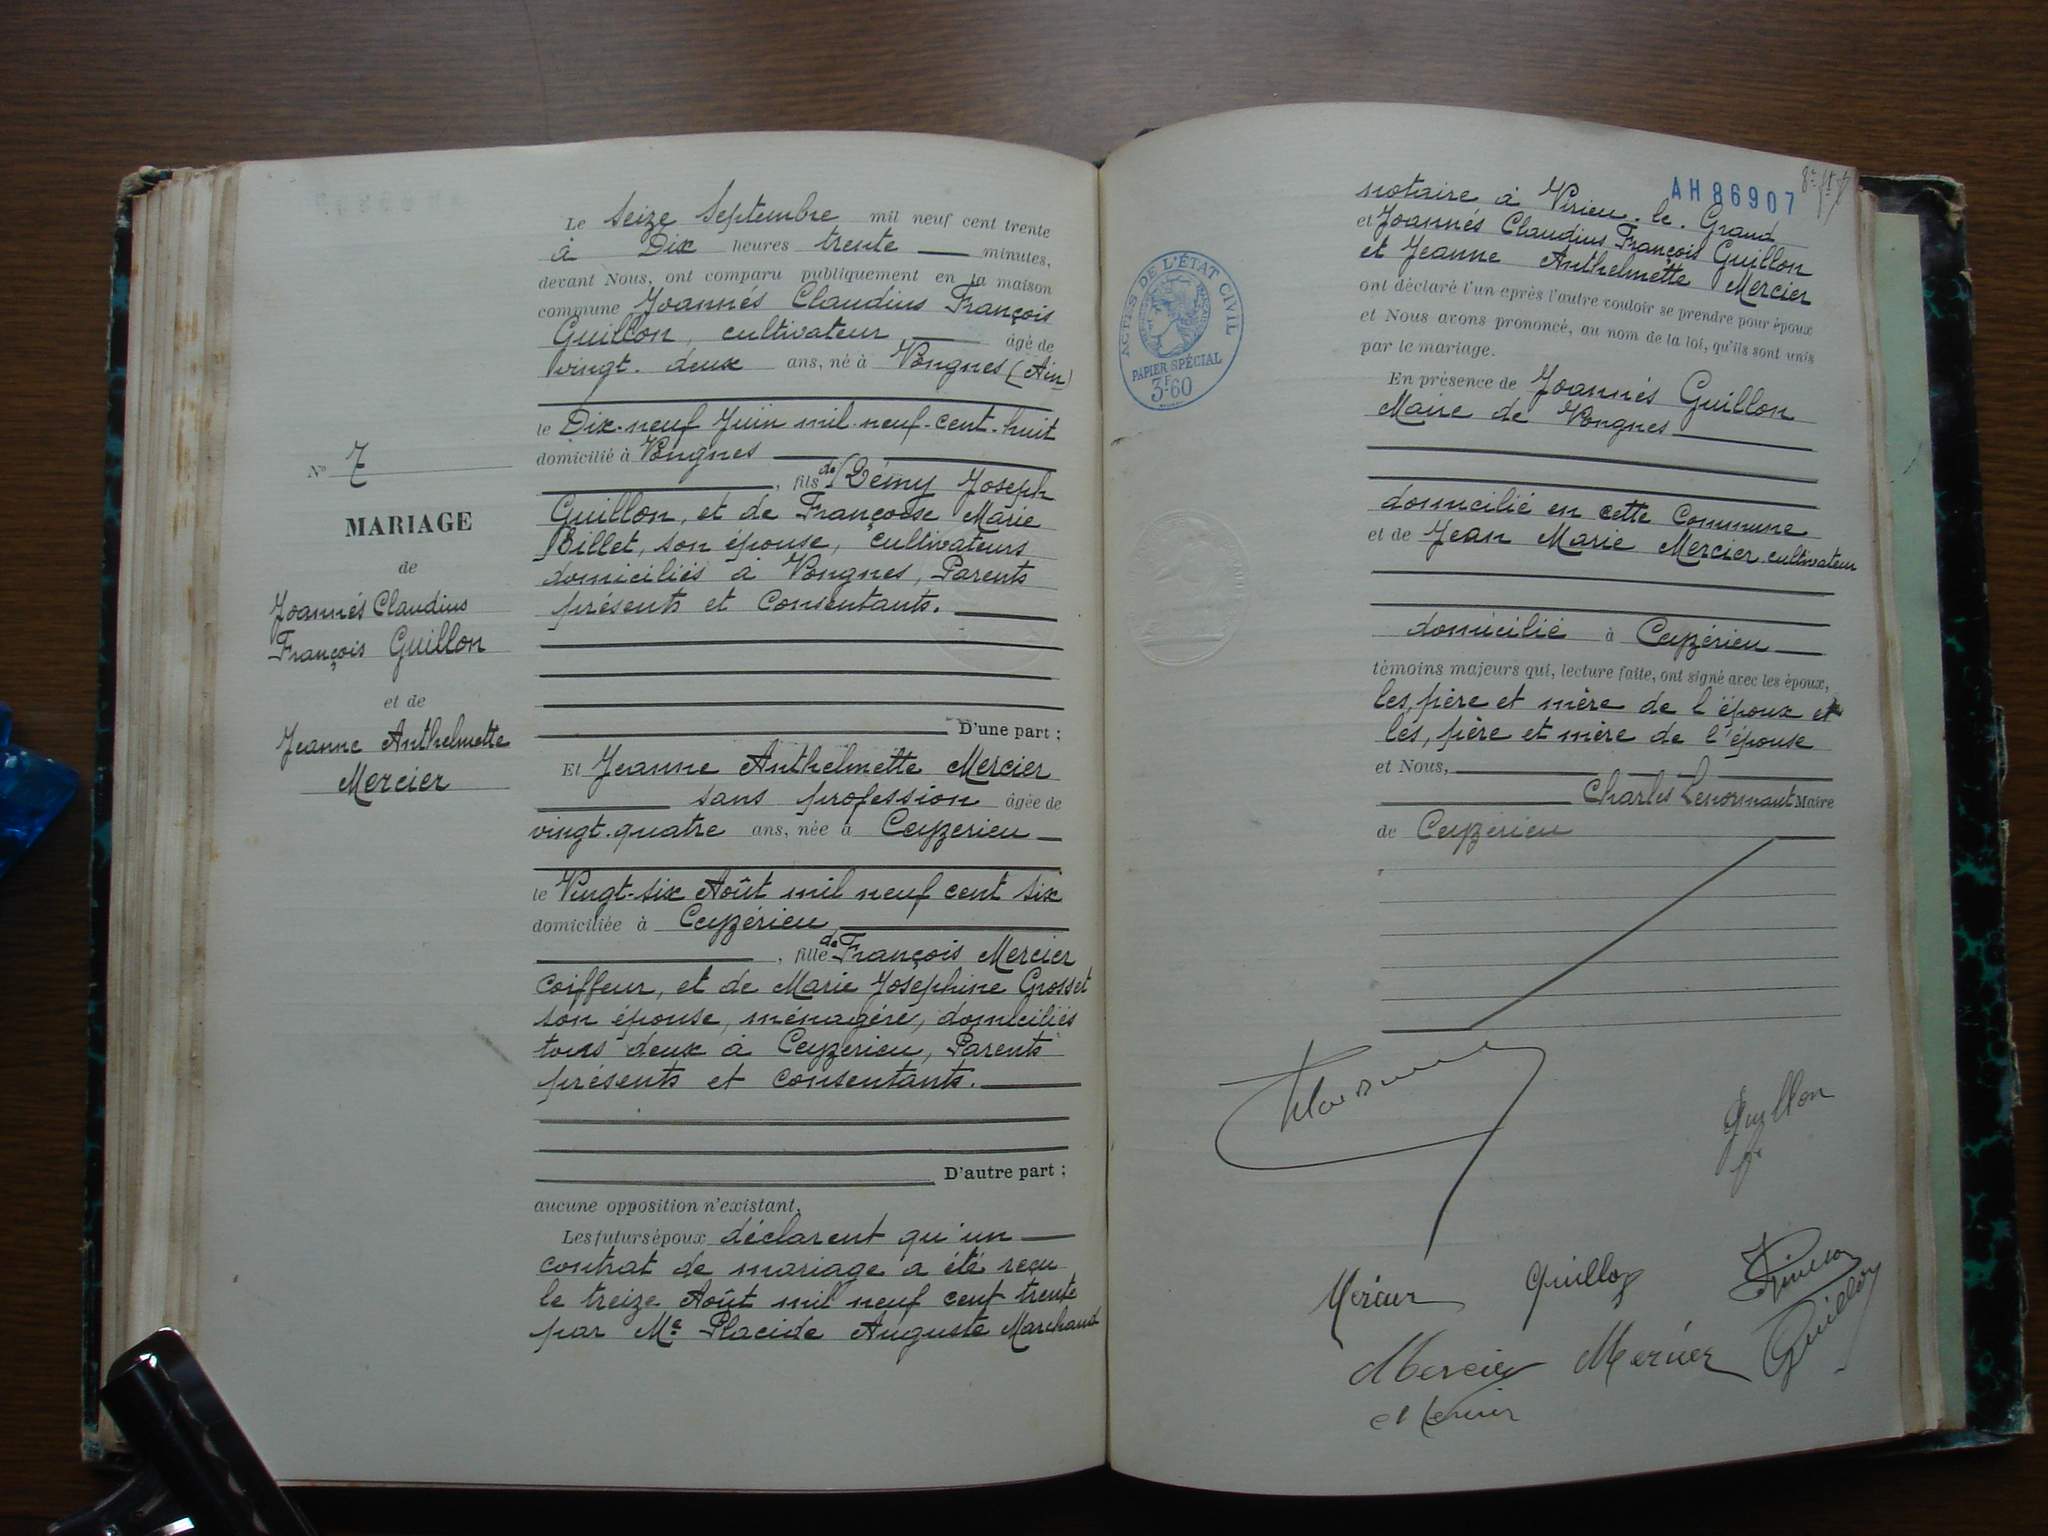 Le Seize Septembre mil neuf cent trente
à Dix heures trente minutes,
devant Nous, ont comparu publiquement en la maison
commune Joannés Claudius François
Guillon, cultivateur âgé de
vingt-deux ans, né à Vongnes (Ain)
le Dix-neuf Juin mil-neuf-cent-huit
domicilié à Vongnes
, fils de Rémy Joseph
Guillon, et de Françoise Marie
Billet, son épouse, cultivateurs
domiciliés à Vongnes, Parents
présents et Consentants.
D'une part ;
Et Jeanne Anthelmette Mercier
sans profession âgée de
vingt-quatre ans, née à Ceyzerieu
le Vingt-six Août mil neuf cent six
domiciliée à Ceyzérieu
, fille de François Mercier
coiffeur, et de Marie Josephine Grosset
son épouse, ménagère, domiciliés
tous deux à Ceyzerieu, Parents
présents et consentants.
D'autre part ;
aucune opposition n'existant,
Les futurs époux déclarent qu'un
contrat de mariage a été reçu
le treize Août mil neuf cent trente
par Me Placide Auguste Marchand
N° 7
MARIAGE
de
Joannés Claudius
François Guillon
et de
Jeanne Anthelmette
Mercier
AH86907
notaire à Virieu-le-Grand
et Joannés Claudius François Guillon
et Jeanne Anthelmette Mercier
ont déclaré l'un eprès l'autre vouloir se prendre pour époux
et Nous avons prononcé, au nom de la loi, qu'ils sont unis
par le mariage.
En présence de Joannés Guillon
Maire de Vongnes
domicilié en cette Commune
et de Jean Marie Mercier cultivateur
domicilié à Ceyzérieu
témoins majeurs qui, lecture faite, ont signé avec les époux,
les, père et mère de l'époux et
les, père et mère de l'épouse
et Nous,
Charles Lenormant Maire
de Ceyzérieu
ACTES DE L'ÉTAT CIVIL
PAPIER SPÉCIAL
3F60
Guillon
Mercier
Guillon
Guillon
Mercier
Mercier